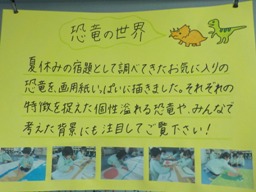 恐竜の世界
夏休みの宿題として調べてきたお気に入りの
恐竜を、画用紙いっぱいに描きました。それぞれの
特徴を捉えた個性溢れる恐竜や、みんなで
考えた背景にも注目してご覧下さい！